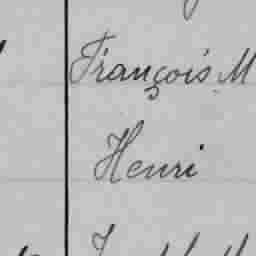 François M
Henri